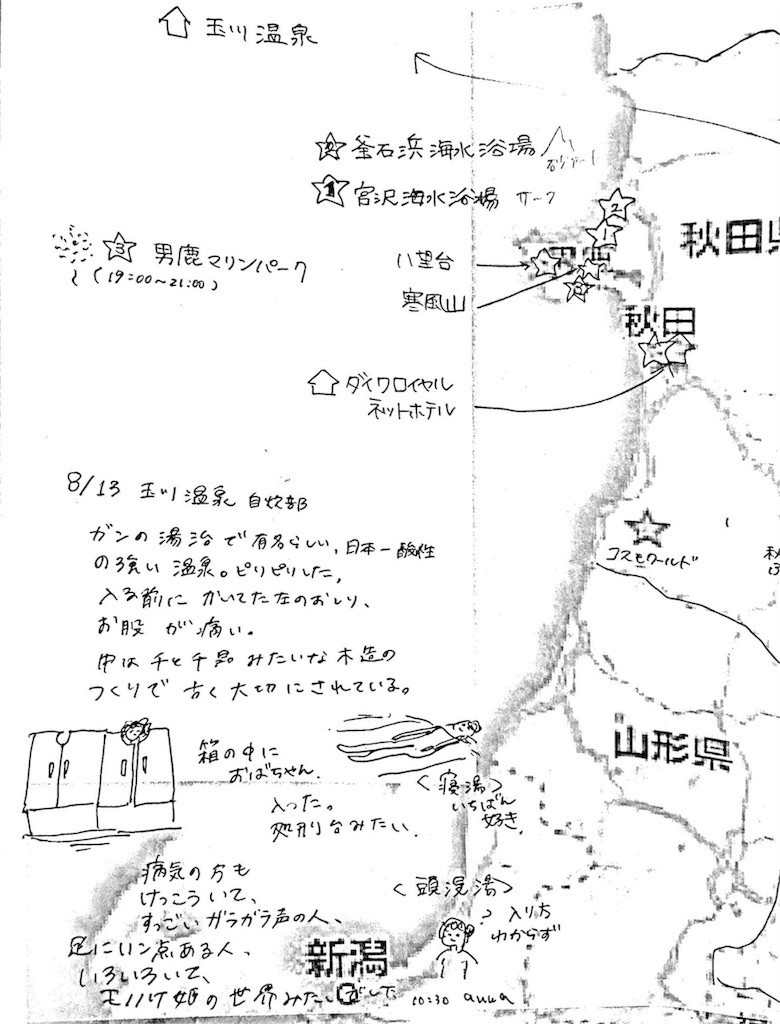 玉川温泉
2 釜石浜海水浴場
1 宮沢海水浴場 サーフ
2
1
秋田県
3 男鹿マリンパーク
(19:00〜21:00)
八望台
寒風山
3
秋田
ダイワロイヤル
ネットホテル
8/13 玉川温泉 自炊部
ガンの湯治で有名らしい、日本一酸性
の強い温泉。ピリピリした。
入る前にかいてた左のおしり、
お股が痛い。
中は千と千尋みたいな木造の
つくりで古く大切にされている。
コスモワールド
秋
山形県
箱の中に
おばちゃん。
入った。
処刑台みたい。
<寝湯>
いちばん
好き。
病気の方も
けっこういて、
すっごいガラガラ声の人、
足にハン点ある人、
いろいろいて、
モノノケ姫の世界みたいでした
<頭浸湯>
? 入り方
わからず
新潟
10:30 auua